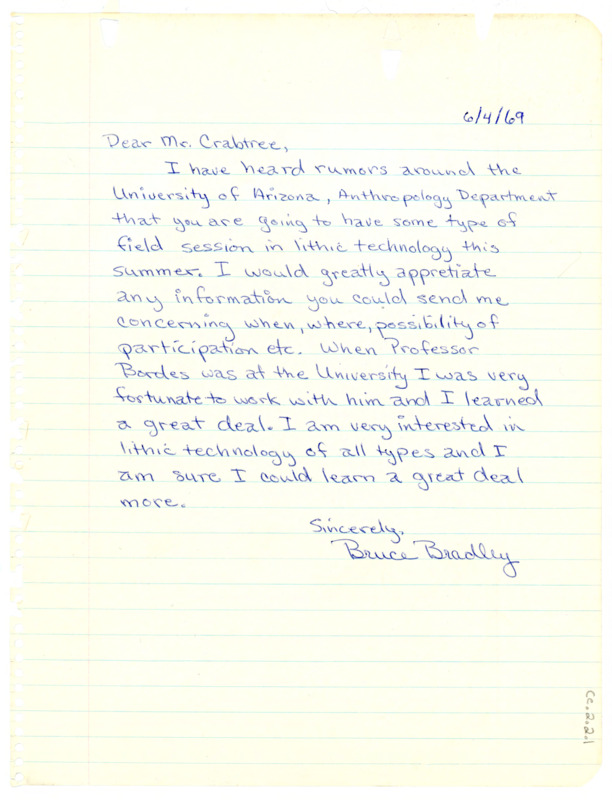 6/4/69
Dear Mr. Crabtree,
I have heard rumors around the
University of Arizona, Anthropology Department
that you are going to have some type of
field session in lithic technology this
summer. I would greatly appretiate
any information you could send me
concerning when, where, possibility of
participation etc. When Professor
Bordes was at the University I was very
fortunate to work with him and I learned
a great deal. I am very interested in
lithic technology of all types and I
am sure I could learn a great deal
more.
Sincerely,
Bruce Bradley
CC.2.2.1